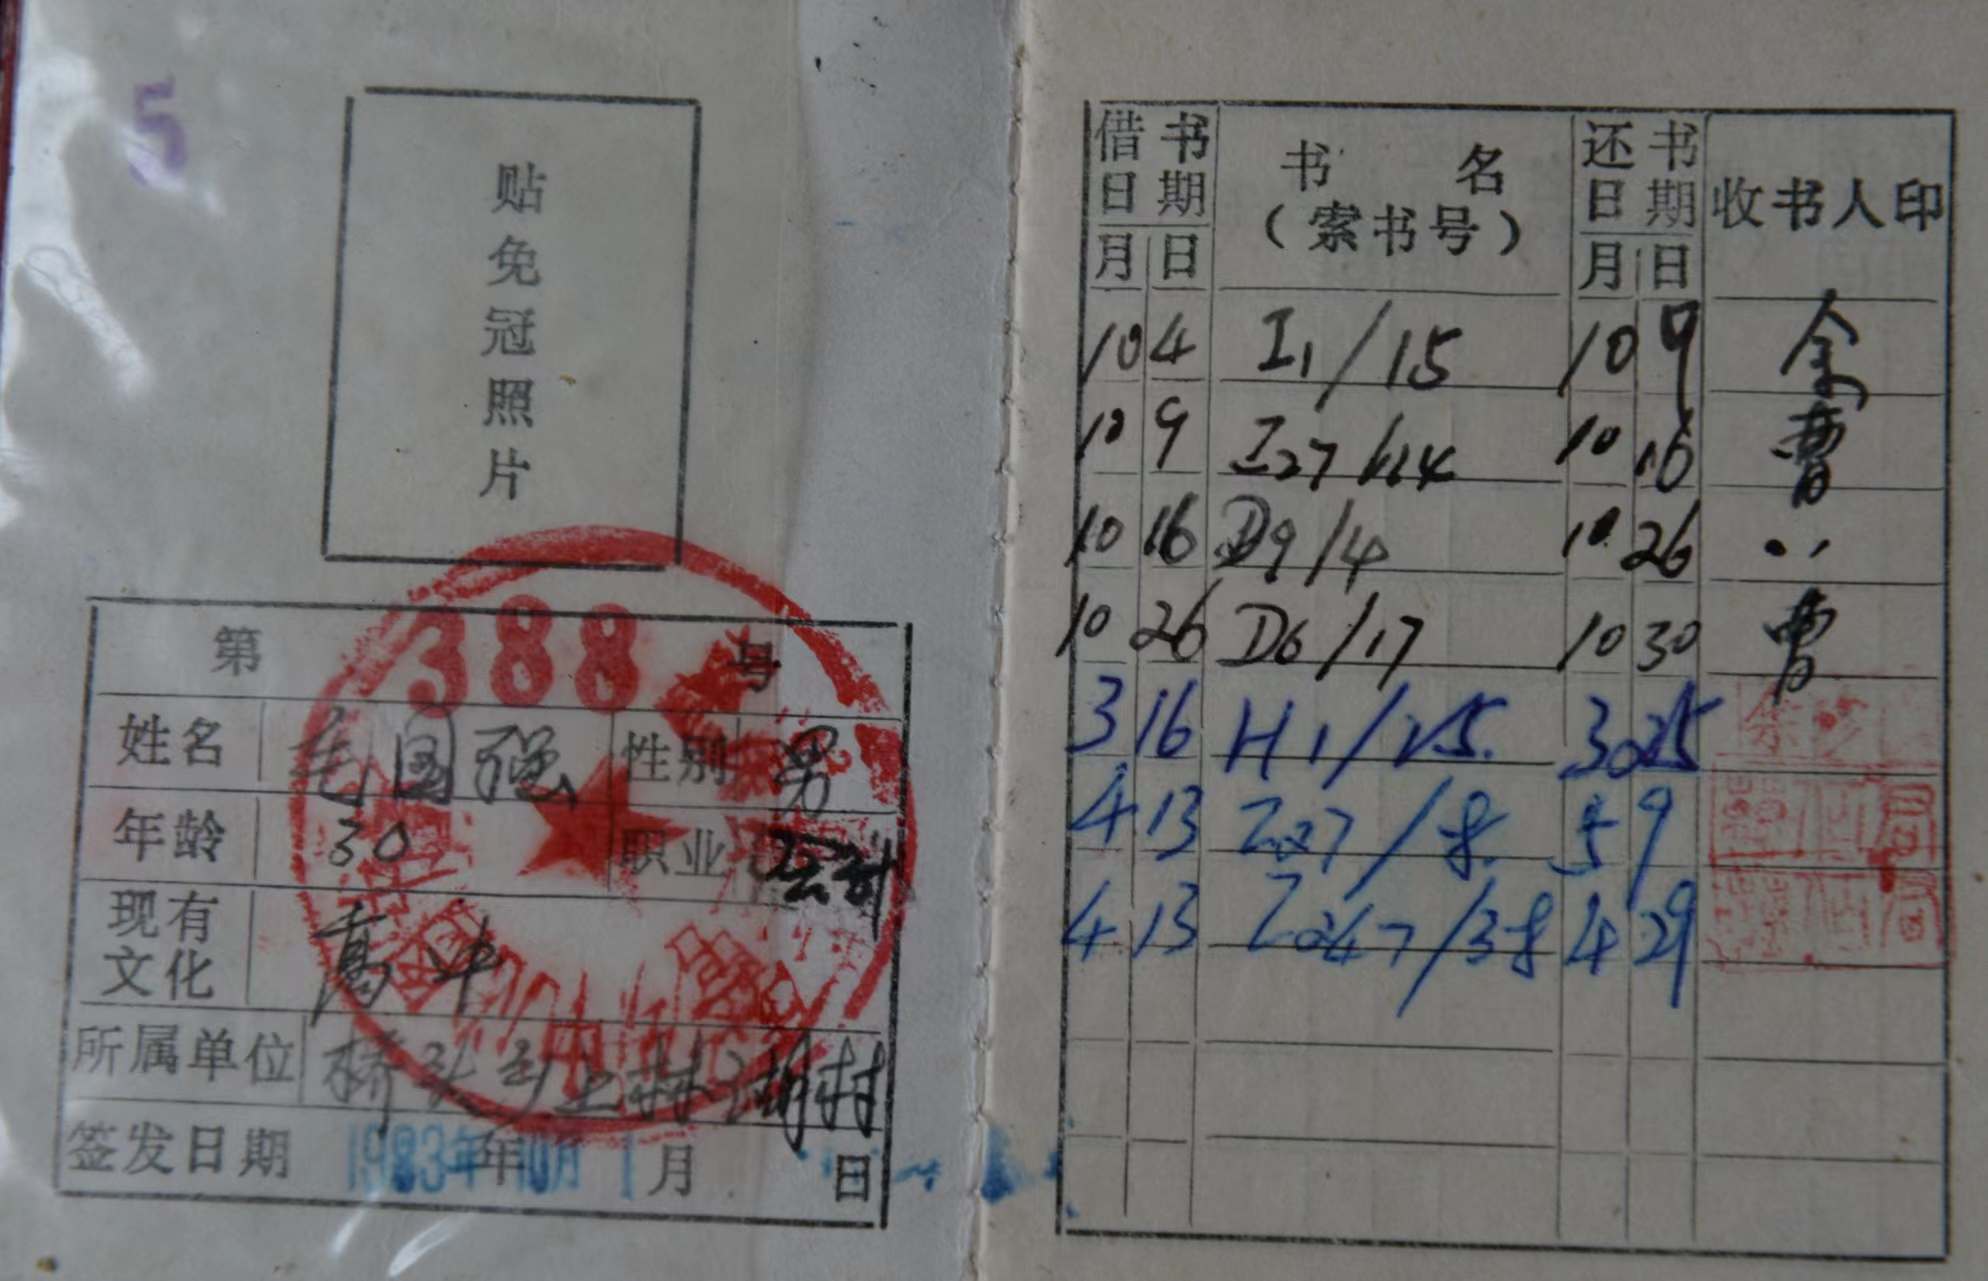 5
贴免冠照片
第 388 号
姓名 毛国强 性别 男
年龄 30 职业 会计
现有文化 高中
所属单位 桥头乡上林湖村
签发日期 1983年 年10月 1 月 日
借书日期 书名 还书日期 收书人印
(索书号)
月 日 月 日
10 4 I1/15 10 9 余
10 9 I27/114 10 16 曹
10 16 D9/4 10 26 〃
10 26 D6/17 10 30 曹
3 16 H1/25 30 25
4 13 I27/8 5 9
4 13 I247/38 4 29